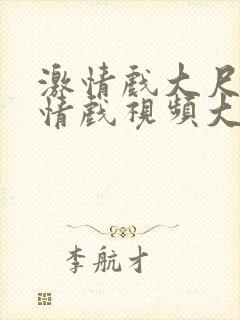 激情戲大尺
情戲視頻大
李航才